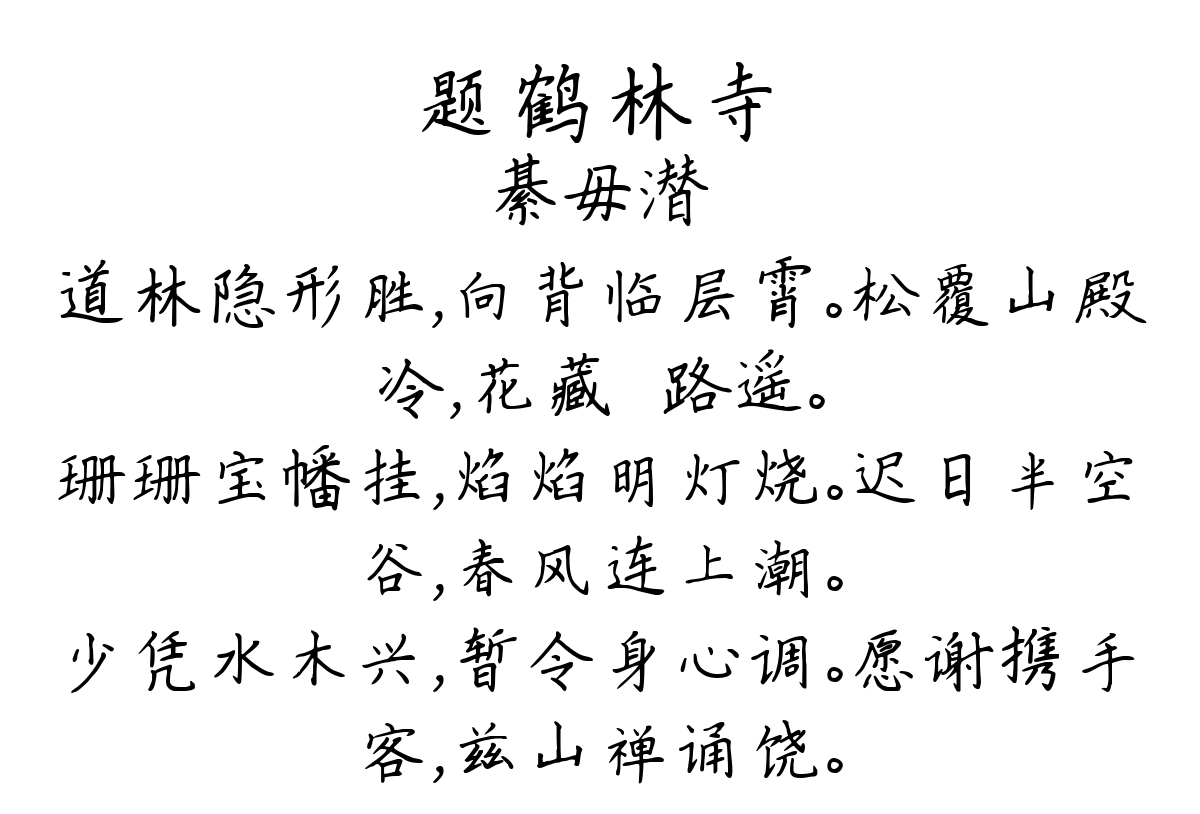 题鹤林寺
綦毋潜
道林隐形胜,向背临层霄。松覆山殿
冷,花藏 路遥。
珊珊宝幡挂,焰焰明灯烧。迟日半空
谷,春风连上潮。
少凭水木兴,暂令身心调。愿谢携手
客,兹山禅诵饶。